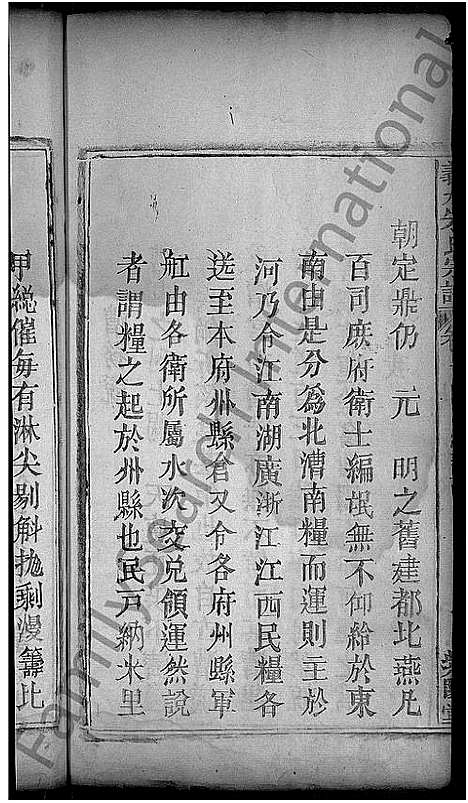 朝定鼎仍 元 明之舊建都北燕凡
百司庶府衛士編氓無不仰給於東
南由是分為北漕南糧而運則主於
河乃令江南湖廣浙江江西民糧各
送至本府州縣倉又令各府州縣軍
舡由各衛所屬水次交兌領運然說
者謂糧之起於州縣也民戸納米里
甲総催毎有淋尖剔斛抛剩漫籌比
FamilySearch International